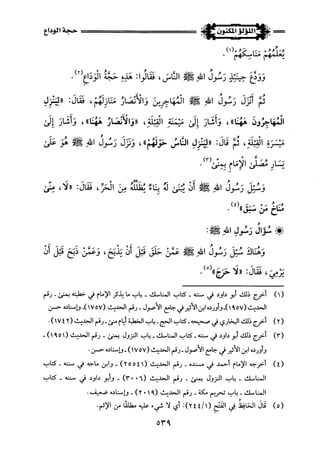 حجة الوداع
اللؤلؤ المكنون
يُعَلِّمُهُمْ مَنَاسِكَهُمْ(١).
وَوَدَّعَ حِينَئِذٍ رَسُولُ اللهِ ﷺ النَّاسَ، فَقَالُوا: هَذِهِ حَجَّةُ الْوَدَاعِ(٢).
ثُمَّ أَنْزَلَ رَسُولُ اللهِ ﷺ الْمُهَاجِرِينَ وَالْأَنْصَارَ مَنَازِلَهُمْ، فَقَالَ: «لِيَنْزِلِ
الْمُهَاجِرُونَ هَهُنَا»، وَأَشَارَ إِلَى مَيْمَنَةِ الْقِبْلَةِ، «وَالْأَنْصَارُ هَهُنَا»، وَأَشَارَ إِلَى
مَيْسَرَةِ الْقِبْلَةِ، ثُمَّ قَالَ: «لِيَنْزِلِ النَّاسُ حَوْلَهُمْ»، وَنَزَلَ رَسُولُ اللهِ ﷺ هُوَ عَلَى
يَسَارِ مُصَلَّى الْإِمَامِ بِمِنًى(٣).
وَسُئِلَ رَسُولُ اللهِ ﷺ أَنْ يُبْنَى لَهُ بِنَاءٌ يُظَلِّلُهُ مِنَ الْحَرِّ، فَقَالَ: «لَا، مِنًى
مُنَاخُ مَنْ سَبَقَ»(٤).
❁ سُؤَالُ رَسُولِ اللهِ ﷺ:
وَهُنَاكَ سُئِلَ رَسُولُ اللهِ ﷺ عَمَّنْ حَلَقَ قَبْلَ أَنْ يَذْبَحَ، وَعَمَّنْ ذَبَحَ قَبْلَ أَنْ
يَرْمِيَ، فَقَالَ: «لَا حَرَجَ»(٥).
(١) أخرج ذلك أبو داود في سننه - كتاب المناسك - باب ما يذكر الإمام في خطبته بمنى - رقم
الحديث (١٩٥٧)، وأورده ابن الأثير في جامع الأصول - رقم الحديث (١٧٥٧)، وإسناده حسن
(٢) أخرج ذلك البخاري في صحيحه - كتاب الحج - باب الخطبة أيام منى - رقم الحديث (١٧٤٢).
(٣) أخرج ذلك أبو داود في سننه - كتاب المناسك - باب النزول بمنى - رقم الحديث (١٩٥١) -
وأورده ابن الأثير في جامع الأصول - رقم الحديث (١٧٥٧) - وإسناده حسن.
(٤) أخرجه الإمام أحمد في مسنده - رقم الحديث (٢٥٥٤١) - وابن ماجه في سننه - كتاب
المناسك - باب النزول بمنى - رقم الحديث (٣٠٠٦) - وأبو داود في سننه - كتاب
المناسك - باب تحريم مكة - رقم الحديث (٢٠١٩) - وإسناده ضعيف.
(٥) قال الحَافِظُ فِي الفَتْحِ (٢٤٤/١): أي لا شيء عليه مطلقًا من الإثم.
٥٣٩